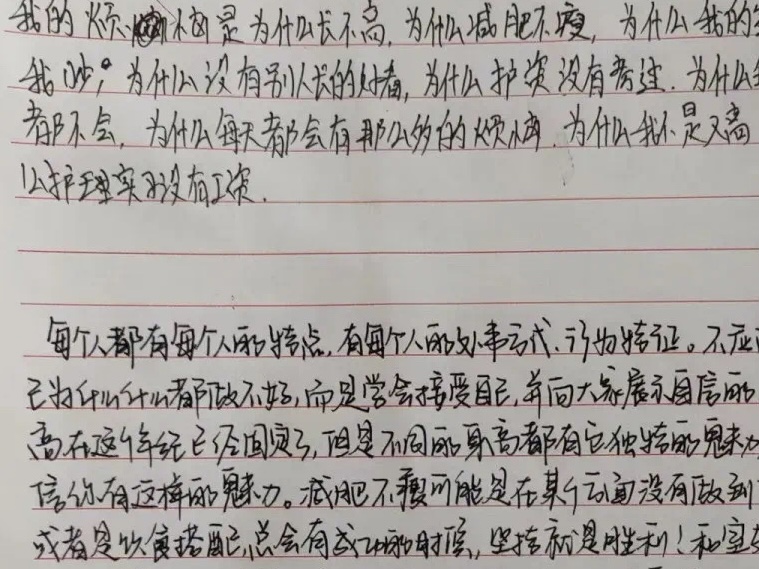 我的烦恼是为什么长不高，为什么减肥不瘦，为什么我的
我吵，为什么没有别人长的好看，为什么护资没有考过．为什么
都不会．为什么每天都会有那么多的烦恼．为什么我不是又高
么护理实习没有工资．
每个人都有每个人的特点，有每个人的处事方式、行为特征。不应
己为什么什么都做不好，而是学会接受自己，并向大家展示自信的
高在这个年纪已经固定了，但是不同的身高都有它独特的魅力
信你有这样的魅力。减肥不瘦可能是在某个方面没有做到
或者是饮食搭配，总会有成功的时候，坚持就是胜利！和室友